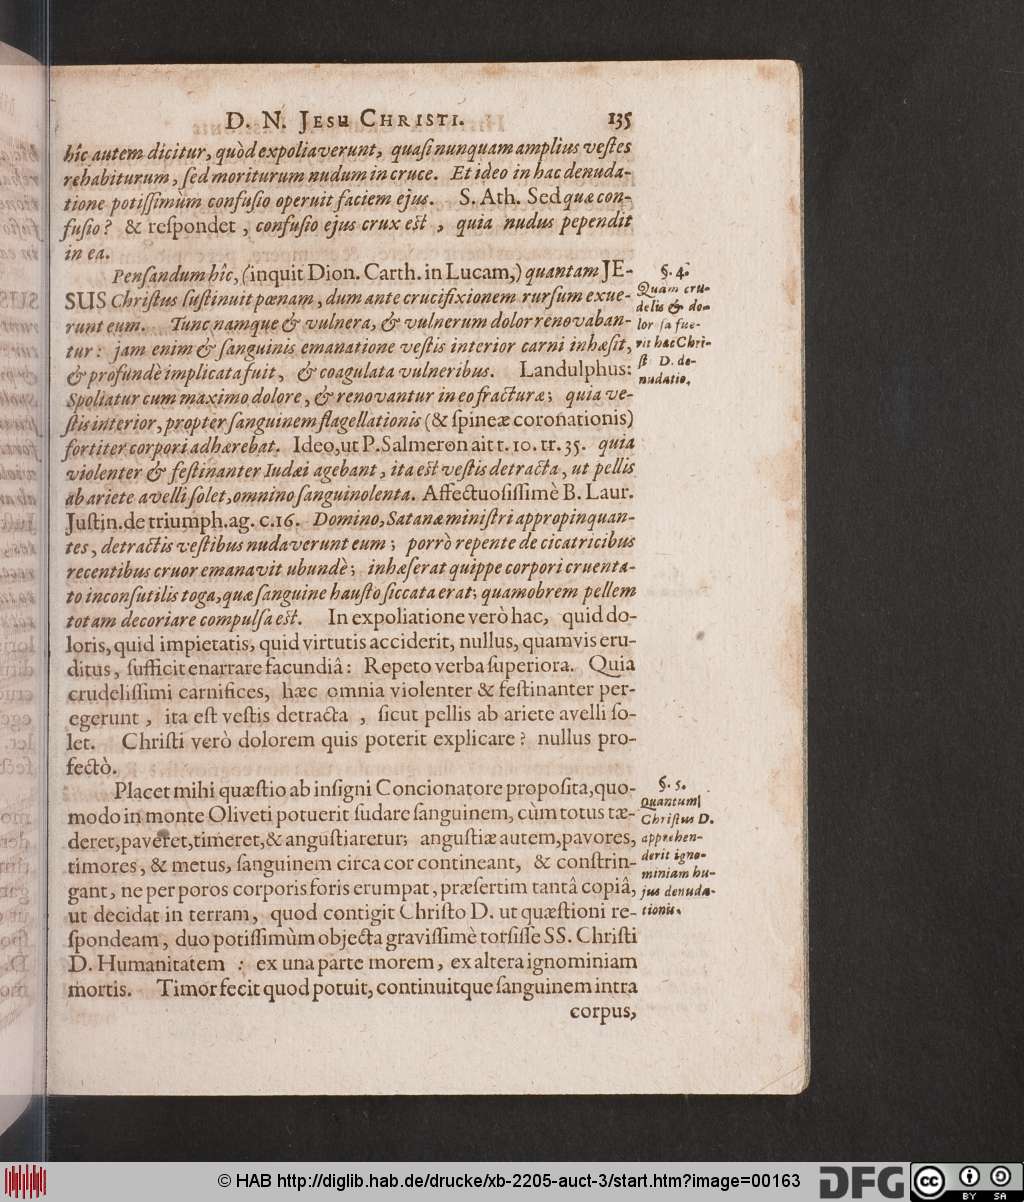 D. N. JESU CHRISTI. 135
hîc autem dicitur, quòd expoliaverunt, quaſi nunquam ampliùs veſtes
rehabiturum, ſed moriturum nudum in cruce. Et ideo in hac denuda-
tione potiſſimùm confuſio operuit faciem ejus. S. Ath. Sed quæ con-
fuſio? & reſpondet, confuſio ejus crux eſt, quia nudus pependit
in ea.
Penſandum hîc, (inquit Dion. Carth. in Lucam,) quantam JE-
SUS Chriſtus ſuſtinuit pœnam, dum ante crucifixionem rurſum exue-
runt eum. Tunc namque & vulnera, & vulnerum dolor renovaban-
tur: jam enim & ſanguinis emanatione veſtis interior carni inhæſit,
& profundè implicata fuit, & coagulata vulneribus. Landulphus:
Spoliatur cum maximo dolore, & renovantur in eo fracturæ; quia ve-
ſtis interior, propter ſanguinem flagellationis (& ſpineæ coronationis)
fortiter corpori adhærebat. Ideo, ut P. Salmeron ait t. 10. tr. 35. quia
violenter & feſtinanter Iudæi agebant, ita eſt veſtis detracta, ut pellis
ab ariete avelli ſolet, omnino ſanguinolenta. Affectuoſiſſimè B. Laur.
Juſtin. de triumph. ag. c. 16. Domino, Satanæ miniſtri appropinquan-
tes, detractis veſtibus nudaverunt eum; porrò repente de cicatricibus
recentibus cruor emanavit ubundè; inhæſerat quippe corpori cruenta-
to inconſutilis toga, quæ ſanguine hauſto ſiccata erat; quamobrem pellem
totam decoriare compulſa eſt. In expoliatione verò hac, quid do-
loris, quid impietatis, quid virtutis acciderit, nullus, quamvis eru-
ditus, ſufficit enarrare facundiâ: Repeto verba ſuperiora. Quia
crudeliſſimi carnifices, hæc omnia violenter & feſtinanter per-
egerunt, ita eſt veſtis detracta, ſicut pellis ab ariete avelli ſo-
let. Chriſti verò dolorem quis poterit explicare? nullus pro-
fectò.
§. 4.
Quam cru-
delis & do-
lor ſa fue-
rit hæc Chri-
ſt D. de-
nudatio.
Placet mihi quæſtio ab inſigni Concionatore propoſita, quo-
modo in monte Oliveti potuerit ſudare ſanguinem, cùm totus tæ-
deret, paveret, timeret, & anguſtiaretur; anguſtiæ autem, pavores,
timores, & metus, ſanguinem circa cor contineant, & conſtrin-
gant, ne per poros corporis foris erumpat, præſertim tantâ copiâ,
ut decidat in terram, quod contigit Chriſto D. ut quæſtioni re-
ſpondeam, duo potiſſimùm objecta graviſſimè torſiſſe SS. Chriſti
D. Humanitatem : ex una parte morem, ex altera ignominiam
mortis. Timor fecit quod potuit, continuitque ſanguinem intra
corpus,
§. 5.
Quantum
Chriſtus D.
apprehen-
derit igno-
miniam hu-
jus denuda-
tionis.
© HAB http://diglib.hab.de/drucke/xb-2205-auct-3/start.htm?image=00163
DFG
cc
BY SA